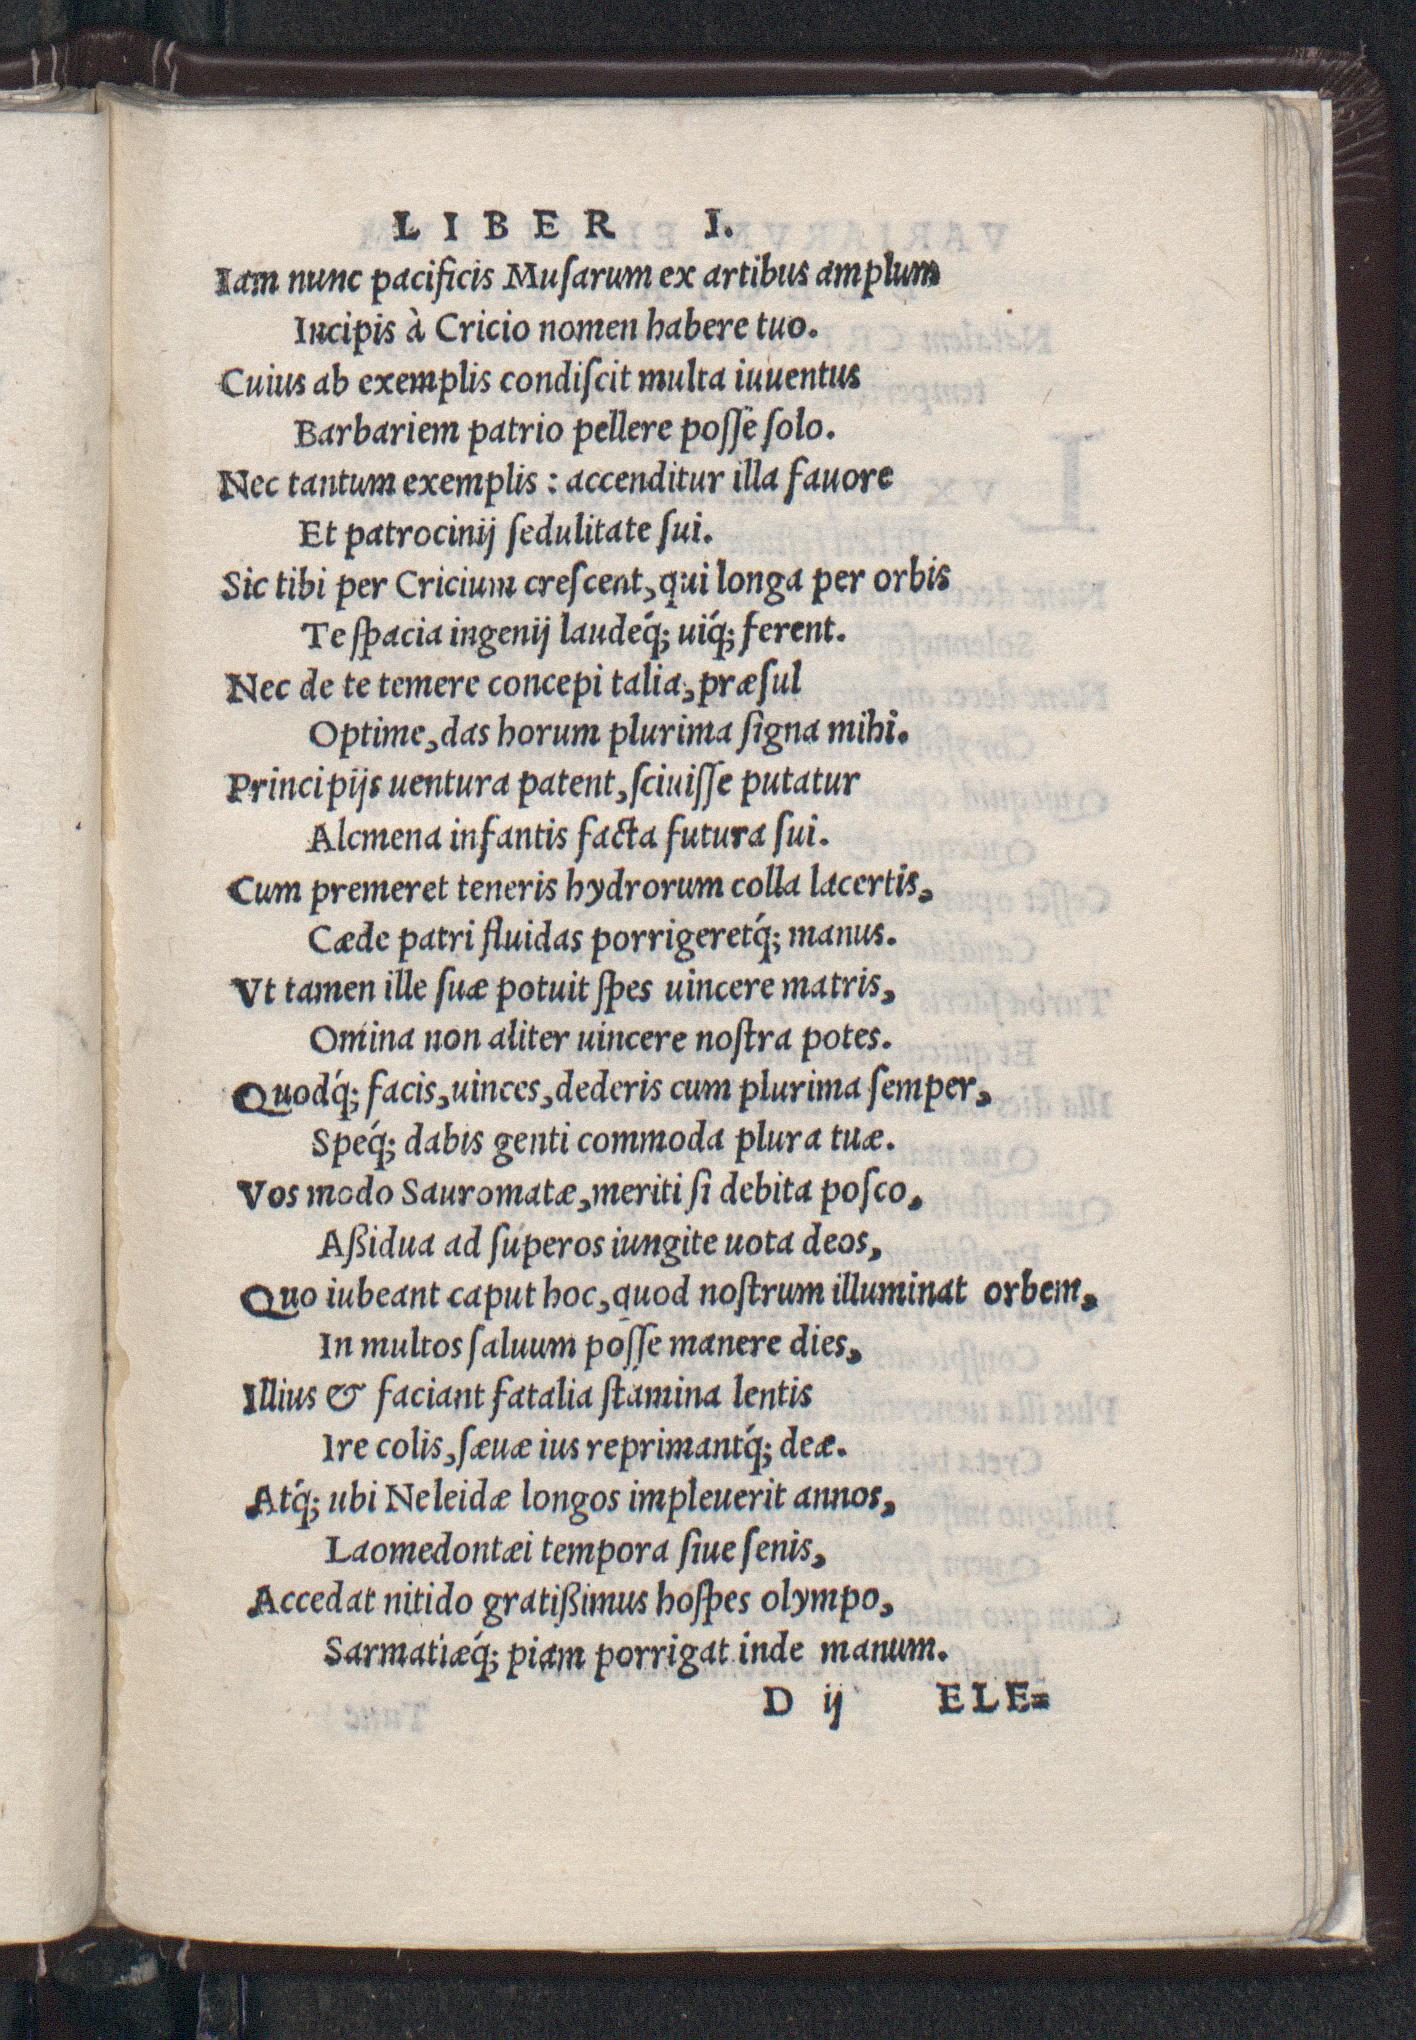 LIBER I.
Iam nunc pacificis Muſarum ex artibus amplum
Incipis à Cricio nomen habere tuo.
Cuius ab exemplis condiſcit multa iuuentus
Barbariem patrio pellere poſſe ſolo.
Nec tantum exemplis : accenditur illa fauore
Et patrocinij ſedulitate ſui.
Sic tibi per Cricium creſcent, qui longa per orbis
Te ſpacia ingenij laudéq; uíq; ferent.
Nec de te temere concepi talia, præſul
Optime, das horum plurima ſigna mihi.
Principijs uentura patent, ſciuiſſe putatur
Alcmena infantis facta futura ſui.
Cum premeret teneris hydrorum colla lacertis,
Cæde patri fluidas porrigeret́q; manus.
Vt tamen ille ſuæ potuit ſpes uincere matris,
Omina non aliter uincere noſtra potes.
Quod́q; facis, uinces, dederis cum plurima ſemper,
Spéq; dabis genti commoda plura tuæ.
Vos modo Sauromatæ, meriti ſi debita poſco,
Aßidua ad ſuperos iungite uota deos,
Quo iubeant caput hoc, quod noſtrum illuminat orbem,
In multos ſaluum poſſe manere dies,
Illius & faciant fatalia ſtamina lentis
Ire colis, ſæuæ ius reprimant́q; deæ.
At́q; ubi Neleidæ longos impleuerit annos,
Laomedontæi tempora ſiue ſenis,
Accedat nitido gratißimus hoſpes olympo,
Sarmatiǽq; piam porrigat inde manum.
D ij ELE=